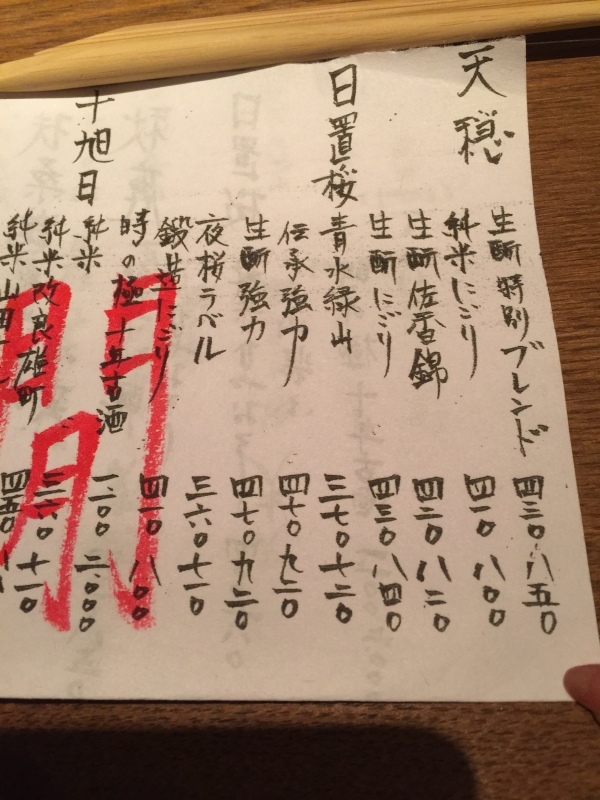 天穏
生酛特別ブレンド 四三〇 八五〇
純米にごり 四一〇 八〇〇
生酛佐香錦 四二〇 八二〇
生酛にごり 四三〇 八四〇
日置桜
青水緑山 三七〇 七二〇
伝承強力 四七〇 九二〇
生酛強力 四七〇 九二〇
夜桜ラベル 三六〇 七一〇
鍛造にごり 四一〇 八〇〇
十旭日
時の極 十年古酒 二〇〇〇
純米 三六〇 七一〇
純米改良雄町 四五〇
純米山田